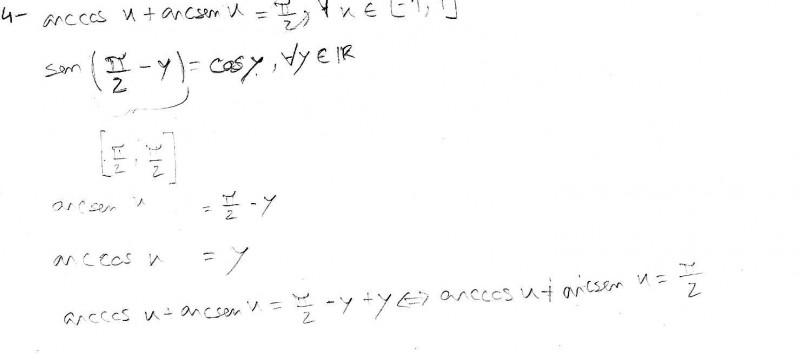 4- arccos x + arcsen x = π/2, ∀ x ∈ [-1, 1]
sen (π/2 - y) = cos y, ∀y ∈ ℝ
[π/2, π/2]
arcsen x = π/2 - y
arccos x = y
arccos x + arcsen x = π/2 - y + y ⇔ arccos x + arcsen x = π/2